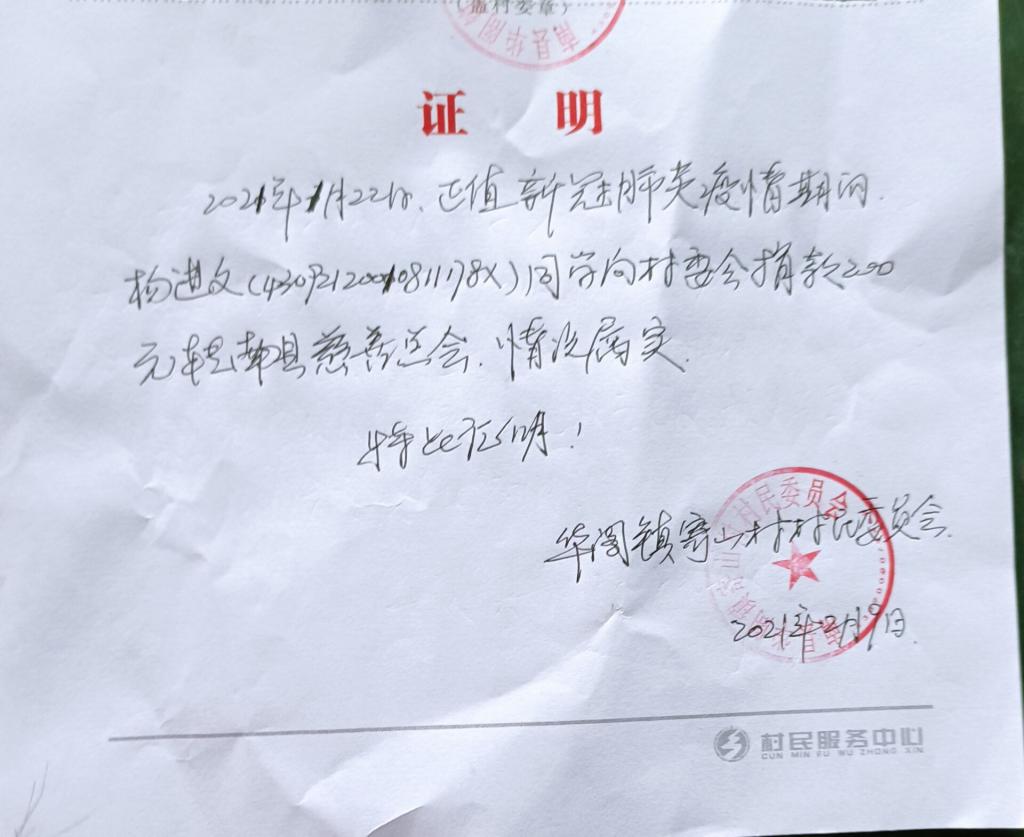 (盖村委章)
南县华阁
证 明
2021年1月22日、正值新冠肺炎疫情期间.
杨进文(43092120010811178X)同学向村委会捐款200
元转南县慈善总会.情况属实.
特此证明!
村民委员会
华阁镇寄山村村民委员会.
2021年2月9日.
村民服务中心
CUN MIN FU WU ZHONG XIN